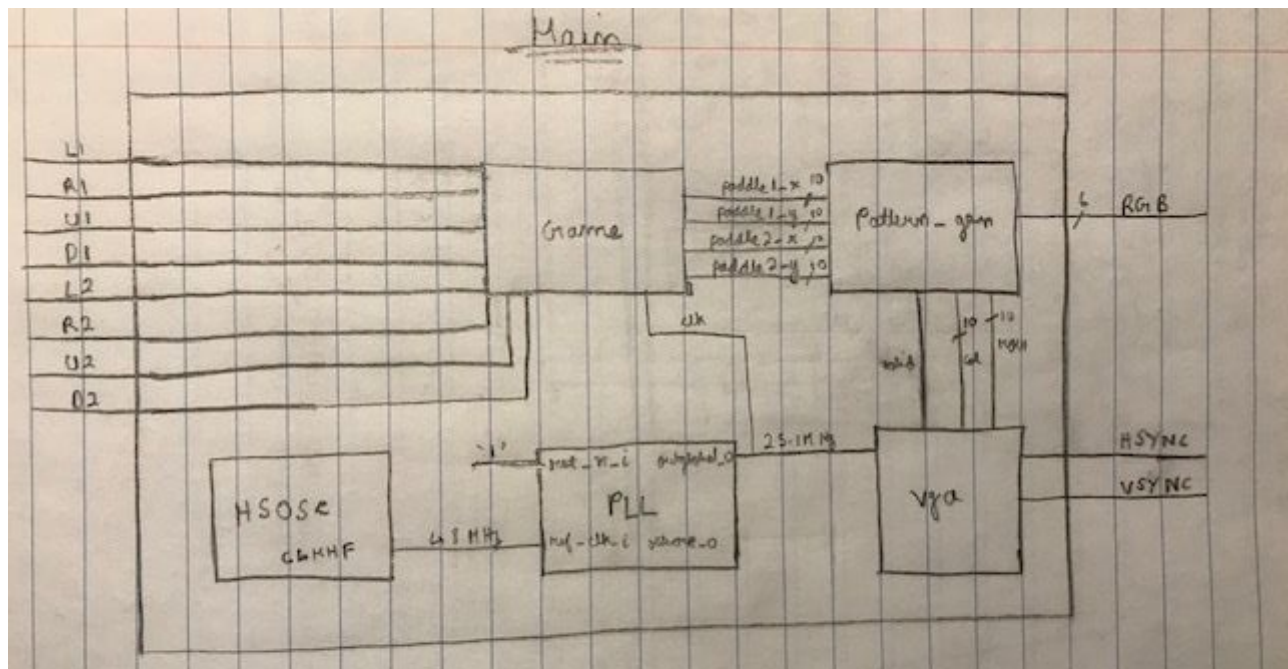 Main
L1
R1
U1
D1
L2
R2
U2
D2
Game
paddle1_x 10
paddle1_y 10
paddle2_x 10
paddle2_y 10
Pattern_gen
6 RGB
clk
valid
10 col
10 row
'1'
HSOSC
CLKHF
48 MHz
reset_n_i outglobal_o
PLL
ref_clk_i outcore_o
25.1MHz
vga
HSYNC
VSYNC